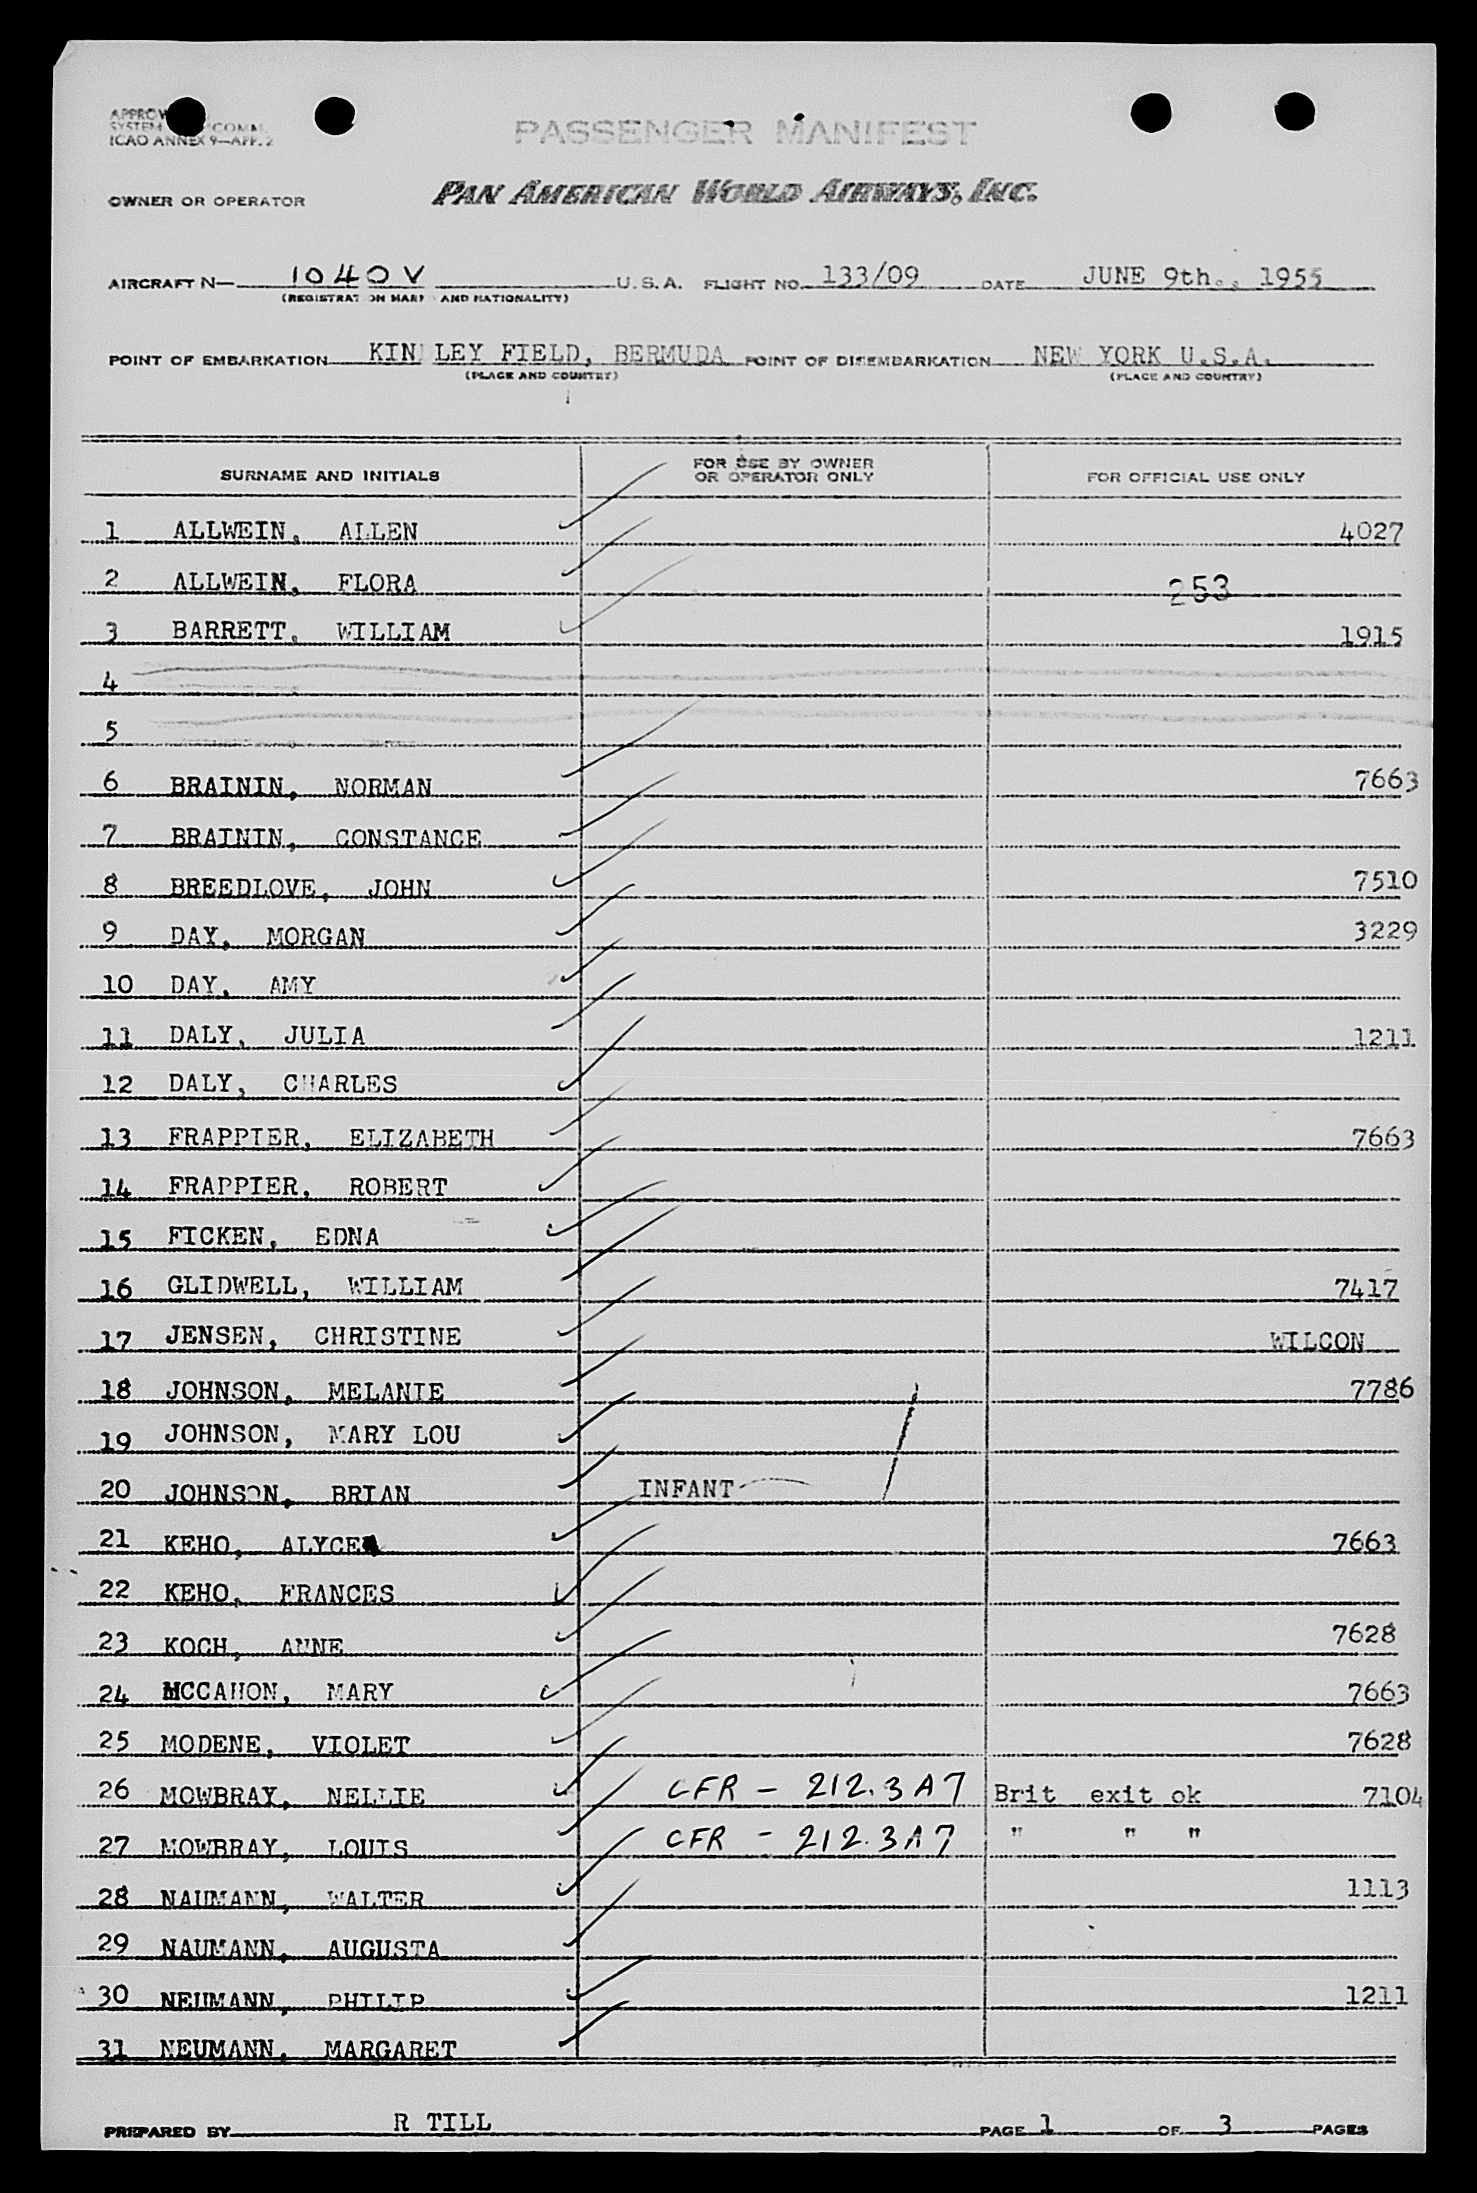 PASSENGER MANIFEST
ICAO ANNEX 9—APP. 2
OWNER OR OPERATOR PAN AMERICAN WORLD AIRWAYS, INC.
AIRCRAFT N— 1040V U.S.A. FLIGHT NO. 133/09 DATE JUNE 9th., 1955
(REGISTRATION MARK AND NATIONALITY)
POINT OF EMBARKATION KIN LEY FIELD, BERMUDA POINT OF DISEMBARKATION NEW YORK U.S.A.
(PLACE AND COUNTRY) (PLACE AND COUNTRY)
SURNAME AND INITIALS FOR USE BY OWNER OR OPERATOR ONLY FOR OFFICIAL USE ONLY
1 ALLWEIN, ALLEN 4027
2 ALLWEIN, FLORA 253
3 BARRETT, WILLIAM 1915
4
5
6 BRAININ, NORMAN 7663
7 BRAININ, CONSTANCE
8 BREEDLOVE, JOHN 7510
9 DAY, MORGAN 3229
10 DAY, AMY
11 DALY, JULIA 1211
12 DALY, CHARLES
13 FRAPPIER, ELIZABETH 7663
14 FRAPPIER, ROBERT
15 FICKEN, EDNA
16 GLIDWELL, WILLIAM 7417
17 JENSEN, CHRISTINE WILCON
18 JOHNSON, MELANIE 7786
19 JOHNSON, MARY LOU
20 JOHNSON, BRIAN INFANT
21 KEHO, ALYCE 7663
22 KEHO, FRANCES
23 KOCH, ANNE 7628
24 MCCAHON, MARY 7663
25 MODENE, VIOLET 7628
26 MOWBRAY, NELLIE CFR - 212.3A7 Brit exit ok 7104
27 MOWBRAY, LOUIS CFR - 212.3A7 " " "
28 NAUMANN, WALTER 1113
29 NAUMANN, AUGUSTA
30 NEUMANN, PHILIP 1211
31 NEUMANN, MARGARET
PREPARED BY R TILL PAGE 1 OF 3 PAGES